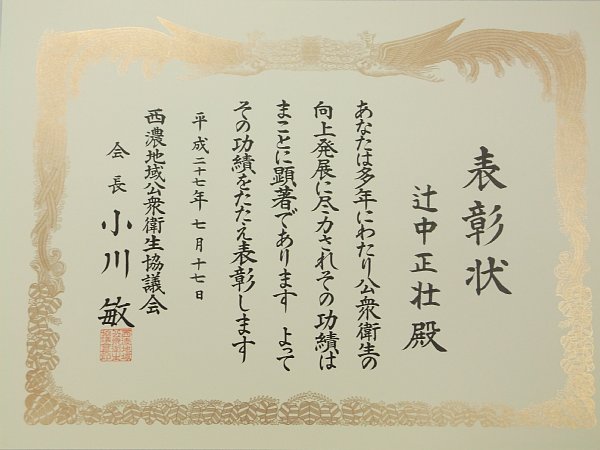 表彰状
辻中正壮殿
あなたは多年にわたり公衆衛生の
向上発展に尽力されその功績は
まことに顕著であります よって
その功績をたたえ表彰します
平成二十七年七月十七日
西濃地域公衆衛生協議会
会長 小川敏